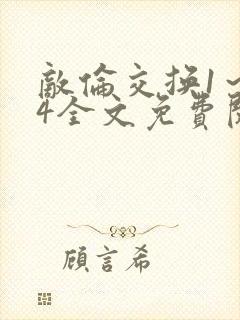 敵倫交换1～
4全文免費閱
顧言希